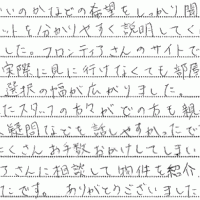 いのかなどの希望をしっかり聞
ットを分かりやすく説明してく
した。フロンティアさんのサイトで
実際に見に行けなくても部屋
選択の幅が広がりました。
たスタッフの方々がどの方も親
疑問などを話しやすかったで
くさんお手数おかけしてしまい
アさんに相談して物件を紹介
たです。ありがとうございました